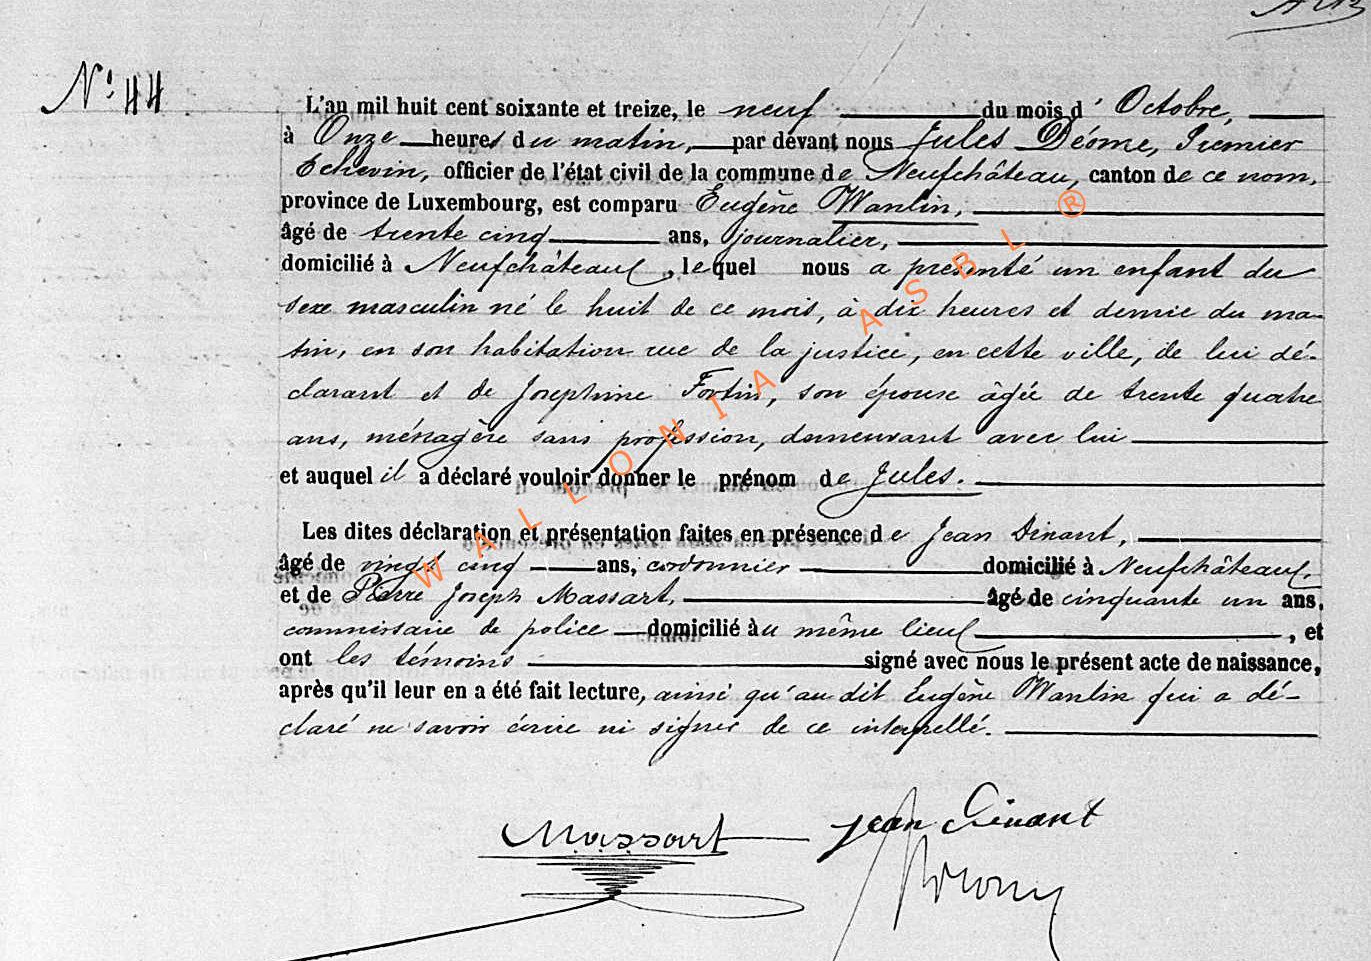 N° 44
L'an mil huit cent soixante et treize, le neuf du mois d' Octobre,
à Onze heures du matin, par devant nous Jules Déome, Premier
Echevin, officier de l'état civil de la commune de Neufchâteau, canton de ce nom,
province de Luxembourg, est comparu Eugène Wanlin,
âgé de trente cinq ans, journalier,
domicilié à Neufchâteau, lequel nous a présenté un enfant du
sexe masculin né le huit de ce mois, à dix heures et demie du ma-
tin, en son habitation rue de la justice, en cette ville, de lui dé-
clarant et de Joséphine Fortin, son épouse âgée de trente quatre
ans, ménagère sans profession, demeurant avec lui
et auquel il a déclaré vouloir donner le prénom de Jules.
Les dites déclaration et présentation faites en présence de Jean Dinant,
âgé de vingt cinq ans, cordonnier domicilié à Neufchâteau,
et de Pierre Joseph Massart, âgé de cinquante un ans,
commissaire de police domicilié au même lieu, et
ont les témoins signé avec nous le présent acte de naissance,
après qu'il leur en a été fait lecture, ainsi qu'au dit Eugène Wanlin qui a dé-
claré ne savoir écrire ni signer de ce interpellé.
Massart Jean Dinant
WALLONIA ASBL ®